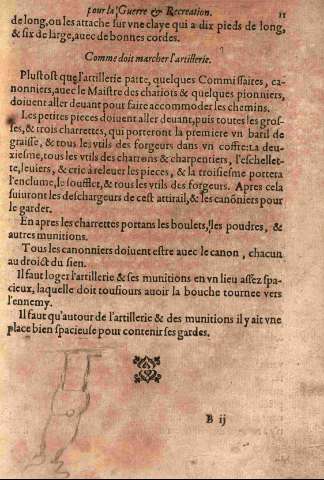 pour la Guerre & Recreation. 11
de long, ou les attache sur vne claye qui a dix pieds de long,
& six de large, auec de bonnes cordes.
Comme doit marcher l'artillerie.
Plustost que l'artillerie parte, quelques Commissaires, ca-
nonniers, auec le Maistre des chariots & quelques pionniers,
doiuent aller deuant pour faire accommoder les chemins.
Les petites pieces doiuent aller deuant, puis toutes les gros-
ses, & trois charrettes, qui porteront la premiere vn baril de
graisse, & tous les vtils des forgeurs dans vn coffre: La deu-
xiesme, tous les vtils des charrons & charpentiers, l'eschellet-
te, leuiers, & cric à releuer les pieces, & la troisiesme portera
l'enclume, le soufflet, & tous les vtils des forgeurs. Apres cela
suiuront les deschargeurs de cest attirail, & les canōniers pour
le garder.
En apres les charrettes portans les boulets, les poudres, &
autres munitions.
Tous les canonniers doiuent estre auec le canon, chacun
au droict du sien.
Il faut loger l'artillerie & ses munitions en vn lieu assez spa-
cieux, laquelle doit tousiours auoir la bouche tournee vers
l'ennemy.
Il faut qu'autour de l'artillerie & des munitions il y ait vne
place bien spacieuse pour contenir ses gardes.
B ij